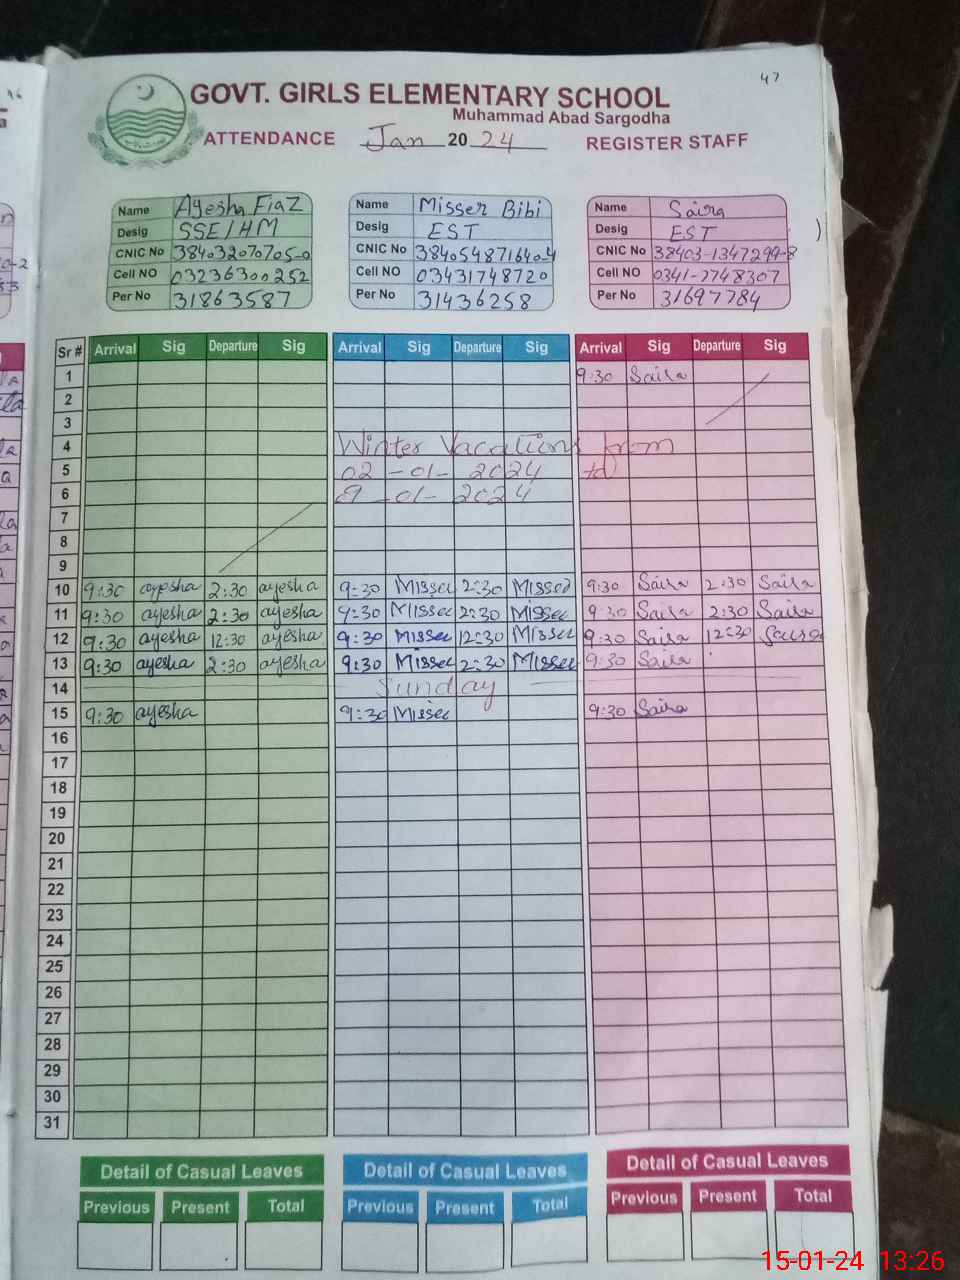 47
GOVT. GIRLS ELEMENTARY SCHOOL
Muhammad Abad Sargodha
ATTENDANCE Jan 2024 REGISTER STAFF
Name Ayesha Fiaz
Desig SSE/HM
CNIC No 3840320707705-0
Cell NO 03236300252
Per No 31863587
Name Misser Bibi
Desig EST
CNIC No 3840548716404
Cell NO 03431748720
Per No 31436258
Name Saira
Desig EST
CNIC No 38403-1347299-8
Cell NO 0341-7748307
Per No 31697784
Sr # Arrival Sig Departure Sig Arrival Sig Departure Sig Arrival Sig Departure Sig
1 9:30 Saira
2
3
4 Winter Vacations from
5 02-01-2024 to
6 9-01-2024
7
8
9
10 9:30 ayesha 2:30 ayesha 9:30 Misser 2:30 Misser 9:30 Saira 2:30 Saira
11 9:30 ayesha 2:30 ayesha 9:30 Misser 2:30 Misser 9:30 Saira 2:30 Saira
12 9:30 ayesha 12:30 ayesha 9:30 Misser 12:30 Misser 9:30 Saira 12:30 Saira
13 9:30 ayesha 2:30 ayesha 9:30 Misser 2:30 Misser 9:30 Saira
14 Sunday
15 9:30 ayesha 9:30 Misser 9:30 Saira
16
17
18
19
20
21
22
23
24
25
26
27
28
29
30
31
Detail of Casual Leaves Detail of Casual Leaves Detail of Casual Leaves
Previous Present Total Previous Present Total Previous Present Total
15-01-24 13:26